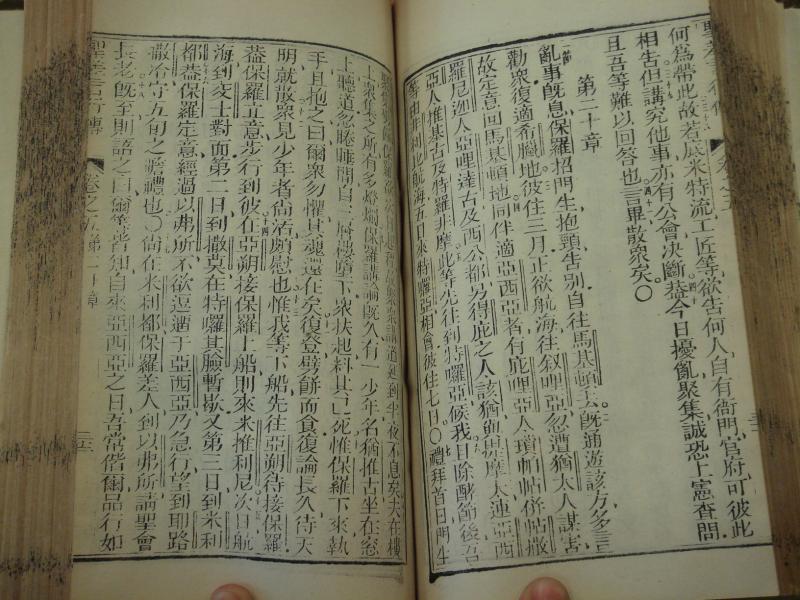 何爲帶此故若底米特流工匠等欲告何人自有衙門官府可彼此
相告但講究他事亦有公會決斷葢今日擾亂聚集誠恐上憲查問
且吾等難以回答也言畢散衆矣〇
第二十章
亂事旣息保羅招門生抱頸告別自往馬基頓去旣通遊該方多言
勸衆復適希臘地彼住三月止欲航海往叙哩亞忽遭猶太人謀害
故定意回馬基頓地同伴適亞西亞者有庇哩亞人瑣帕帖併帖撒
羅尼迦人亞哩達古及西公都另得庇之人該猶兼提摩太連亞西
亞人推基古及特羅非摩此等先往到特囉亞候我目除酵節後吾
等由非利比航海五日來特囉亞相會彼住七日〇禮拜首日門生
上衆集之所有多燈燭保羅講論旣久有一少年名猶推古坐在窓
上聽道忽睡睡間自三層樓墮下衆扶起料其已死惟保羅下來執
手且抱之曰爾衆勿懼其魂還在矣復登劈餅而食復論長久待天
明就散衆見少年者尙活頗慰也惟我等下船先往亞朔待接保羅
葢保羅立意步行到彼在亞朔接保羅上船則來米推利尼次日航
海到基士對面第二日到撒莫在特囉其臉暫歇又第三日到米利
都葢保羅定意經過以弗所不欲逗遛于亞西亞乃急行望到耶路
撒冷守五旬之瞻禮也〇尙在米利都保羅差人到以弗所請聖會
長老旣至則語之曰爾等皆知自來亞西亞之日吾常偕爾品行如
聖差言行傳
卷之五第二十章